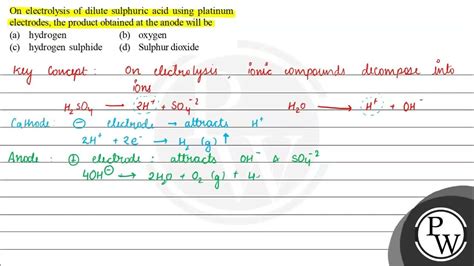 On electrolysis of dilute sulphuric acid using platinum
electrodes, the product obtained at the anode will be
(a) hydrogen (b) oxygen
(c) hydrogen sulphide (d) Sulphur dioxide
Key Concept : On electrolysis, ionic compounds decompose into
ions
H₂SO₄ → 2H⁺ + SO₄⁻² H₂O → H⁺ + OH⁻
Cathode : ⊖ electrode → attracts H⁺
2H⁺ + 2e⁻ → H₂ (g) ↑
Anode : ⊕ electrode : attracts OH⁻ & SO₄⁻²
4OH⊖ → 2H₂O + O₂ (g) + 4
PW